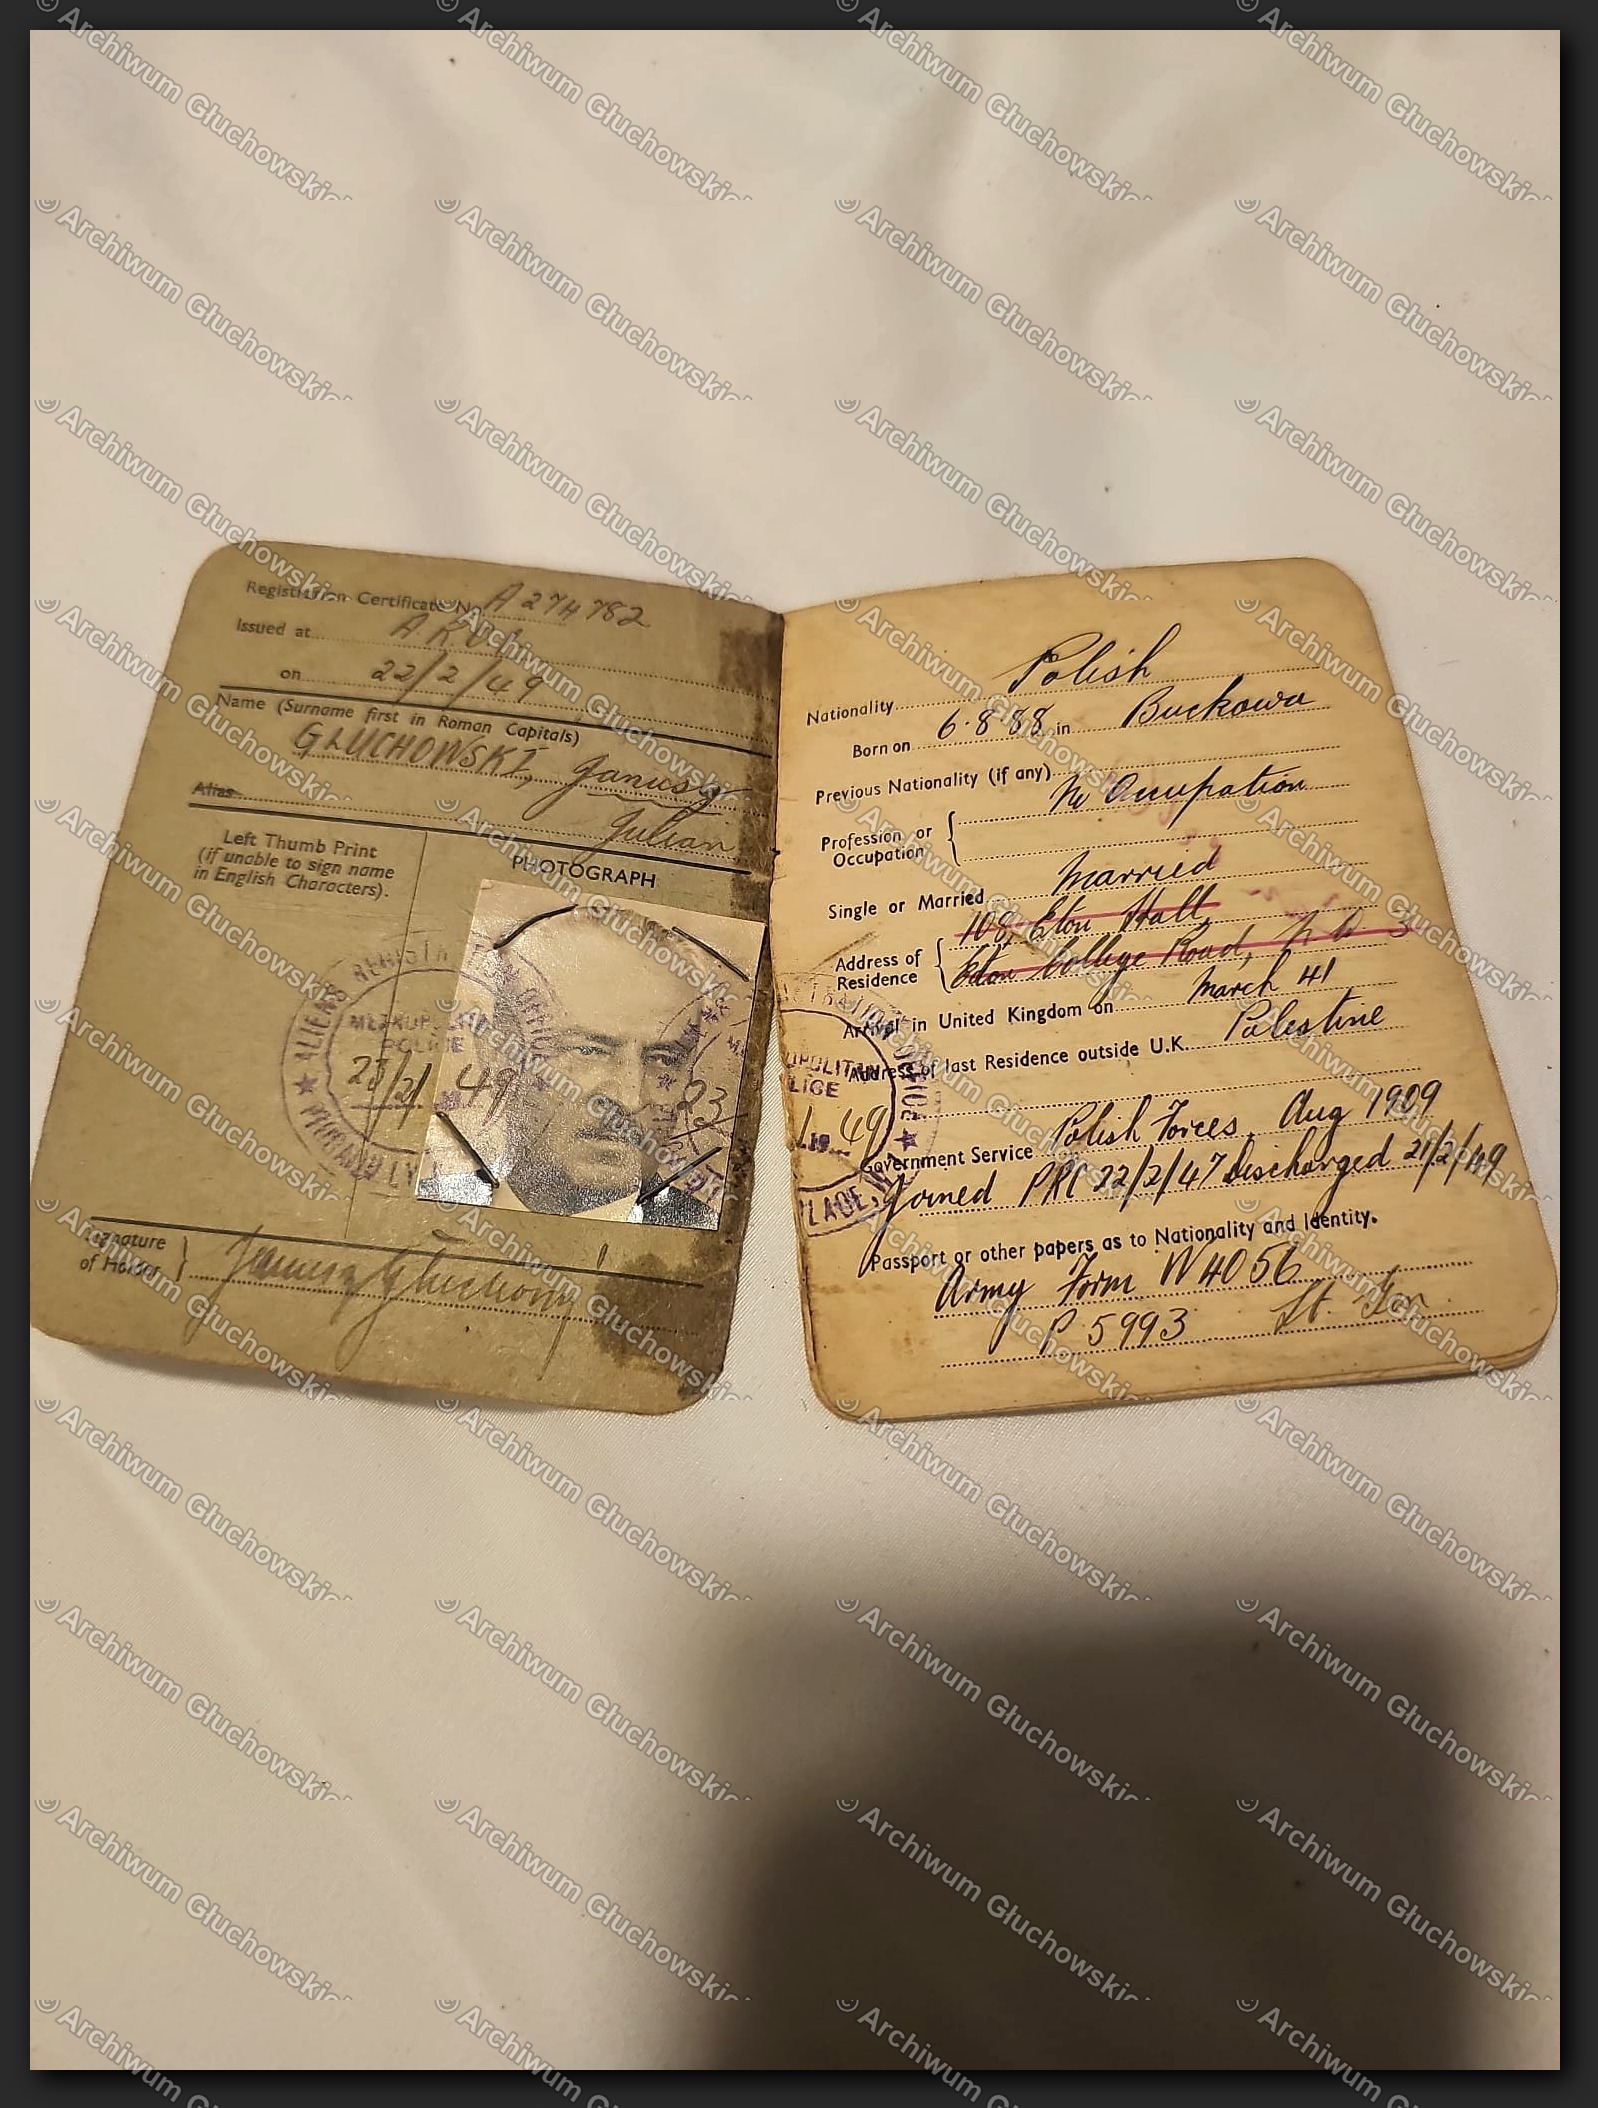 Registration Certificate No. A 274782
Issued at A.R.O.
on 22/2/49
Name (Surname first in Roman Capitals)
GŁUCHOWSKI, Janusz
Julian
Alias
Left Thumb Print
(if unable to sign name
in English Characters).
PHOTOGRAPH
ALIENS REGISTRATION OFFICE
METROPOLITAN
POLICE
49
23
Signature
of Holder
Nationality Polish
Born on 6.8.88 in Buckowa
Previous Nationality (if any)
Profession or
Occupation
No Occupation
Single or Married Married
Address of
Residence
108, Eton Hall,
Eton College Road, N W 3
Arrival in United Kingdom on March 41
Address of last Residence outside U.K. Palestine
Government Service Polish Forces Aug 1909
Joined PRC 22/2/47 Discharged 21/2/49
Passport or other papers as to Nationality and Identity.
Army Form W4056
P 5993 Lt. Gen.
© Archiwum Głuchowskic